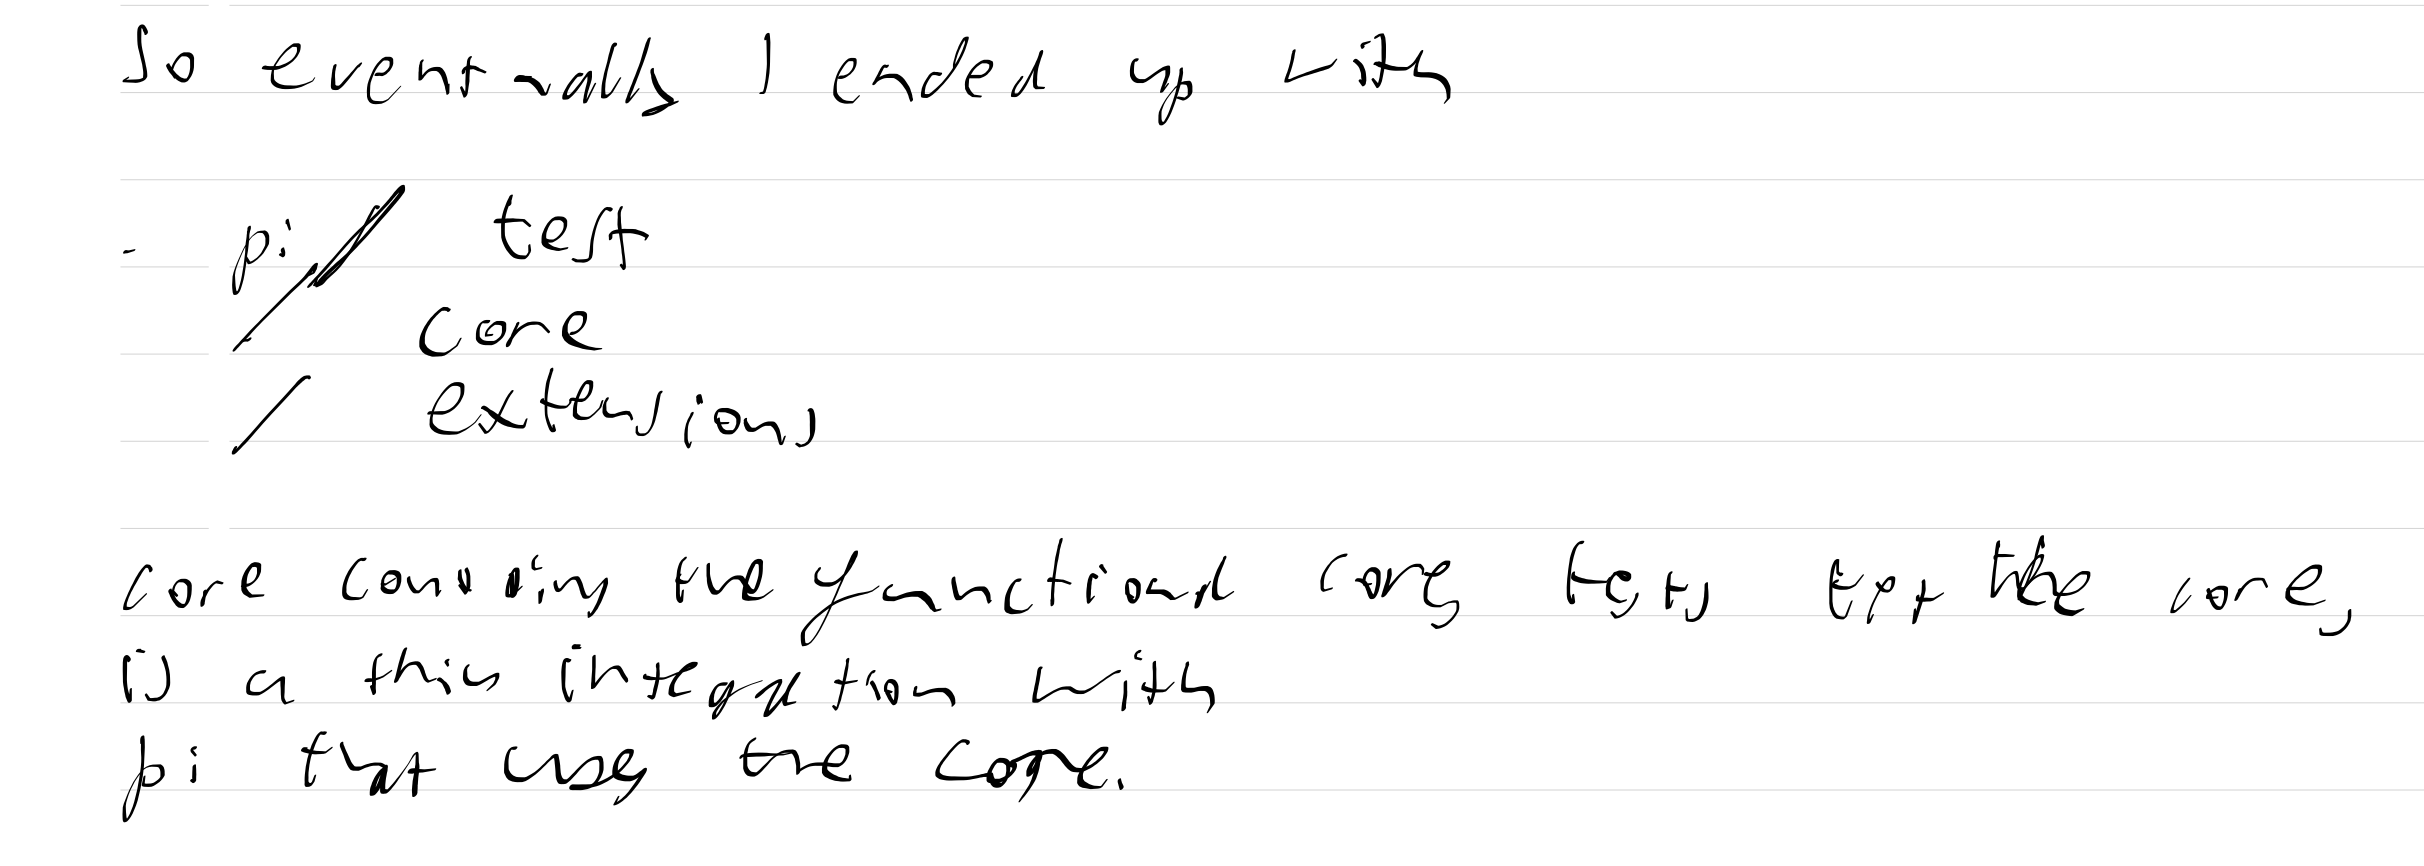 So eventually I ended up with
- pi/ test
/ core
/ extensions
core contains the functional core, tests test the core,
is a thin integration with
pi that uses the core.